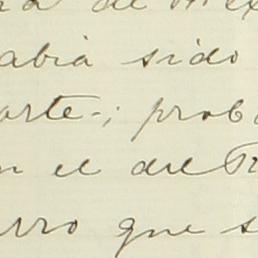 a de Mex
abia sido
arte-; prob
n el del R
urro que s